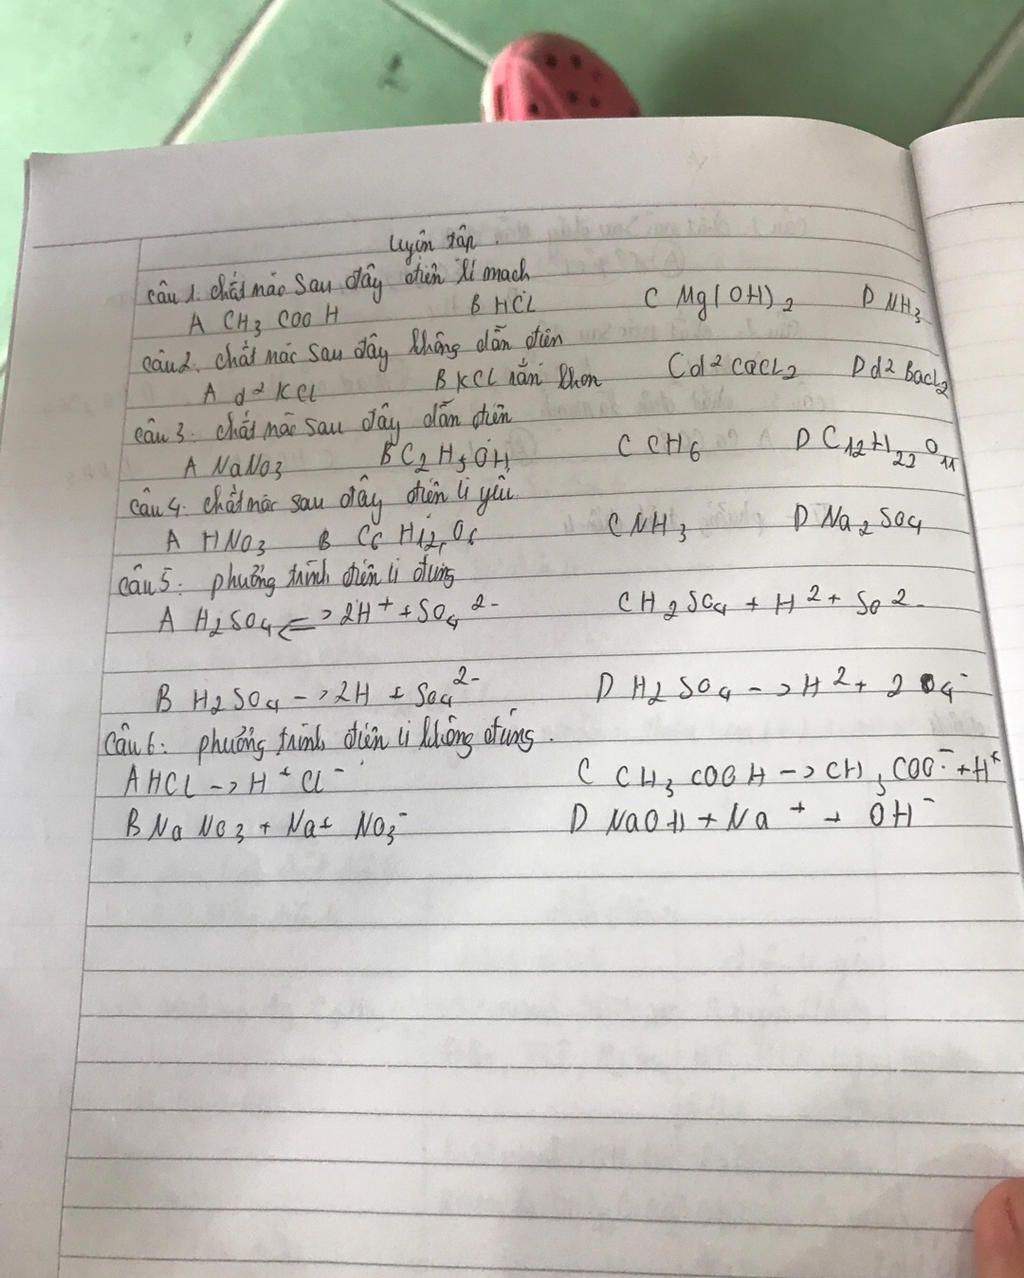 Luyện tập.
Câu 1. chất nào sau đây điện li mạch
A CH3 COO H B HCL C Mg(OH)2 D NH3
Câu 2. chất nào sau đây không dẫn điện
A d² KCl B KCL rắn khan C d² CaCL2 D d² BaCL2
Câu 3. chất nào sau đây dẫn điện
A NaNO3 B C2H5OH C CH6 D C12H22O11
Câu 4. chất nào sau đây điện li yếu
A HNO3 B C6 H12 O6 C NH3 D Na2SO4
Câu 5: phương trình điện li đúng
A H2SO4 <=> 2H⁺ + SO4²⁻ C H2SO4 + H² + SO²⁻
B H2SO4 -> 2H + SO4²⁻ D H2SO4 -> H² + 2O4⁻
Câu 6: phương trình điện li không đúng.
A HCL -> H⁺ Cl⁻ C CH3COOH -> CH3COO⁻ + H⁺
B NaNO3 + Na+ NO3⁻ D NaOH + Na⁺ + OH⁻